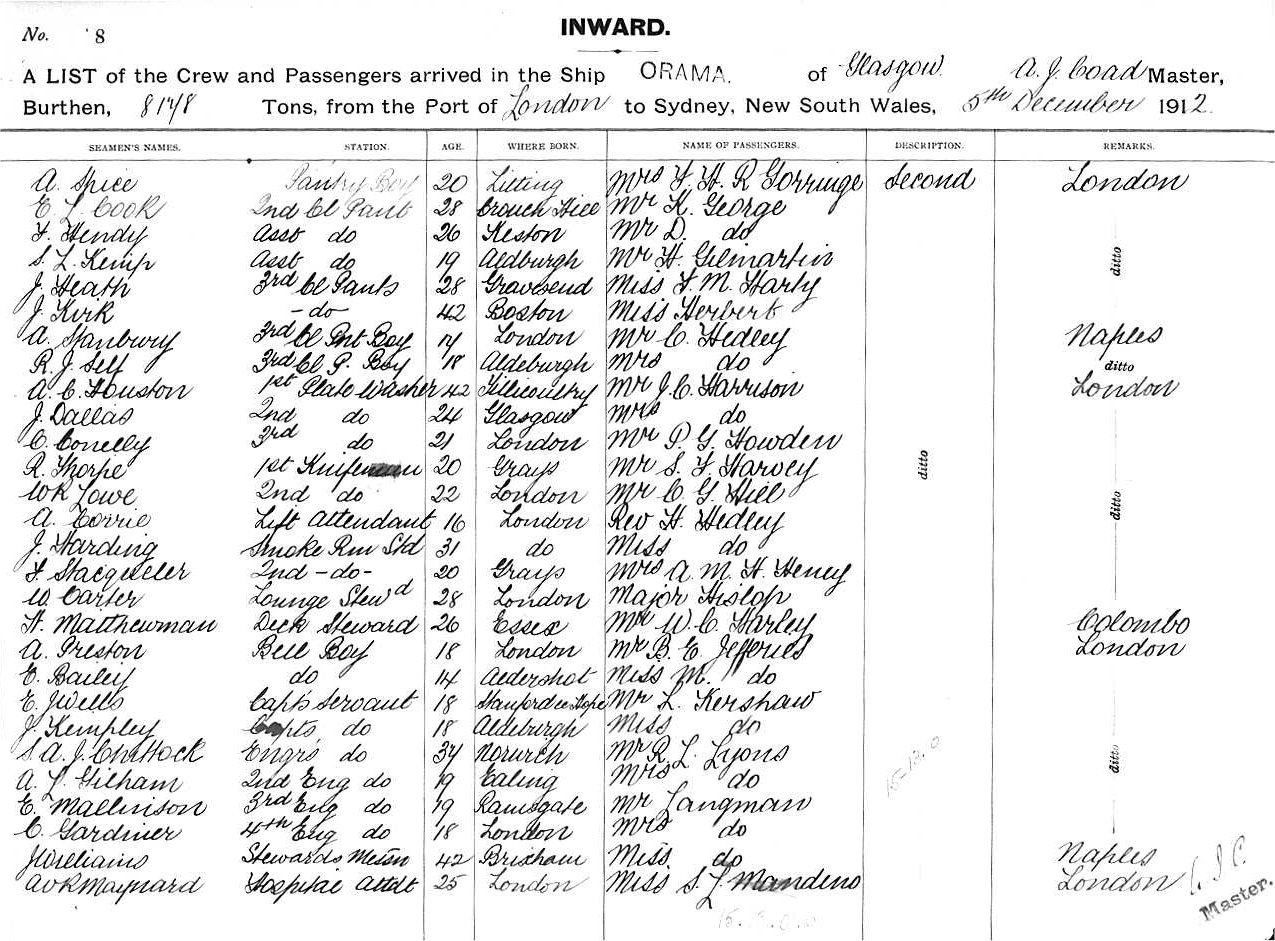 No. 8
INWARD.
A LIST of the Crew and Passengers arrived in the Ship ORAMA. of Glasgow A. J. Coad Master,
Burthen, 8178 Tons, from the Port of London to Sydney, New South Wales, 5th December 1912.
SEAMEN'S NAMES. STATION. AGE. WHERE BORN. NAME OF PASSENGERS. DESCRIPTION. REMARKS.
A. Spice Pantry Boy 20 Mrs F. H. R Gorringe Second London
E. L. Cook 2nd Cl Pant 28 Crouch Hill Mr K. George
F. Hendy Asst do 26 Keston Mr D. do
S. L. Kemp Asst do 19 Aldburgh Mr H. Gilmartin ditto
J. Heath 3rd Cl Pants 28 Gravesend Miss F. M. Harty
J. Kirk -do- 42 Boston Miss Herbert
A. Stanbury 3rd Cl Pnt Boy 17 London Mr C. Hedley Naples
R. J. Self 3rd Cl P. Boy 18 Aldeburgh Mrs do ditto
A. C. Houston 1st Plate Washer 42 Tillicoultry Mr J. C. Harrison London
J. Dallas 2nd do 24 Glasgow Mrs do
C. Conelly 3rd do 21 London Mr P. G. Howden
R. Thorpe 1st Knifeman 20 Grays Mr S. F. Harvey ditto
WR Lowe 2nd do 22 London Mr C. G. Hill ditto
A. Corrie Lift Attendant 16 London Rev H. Hedley
J. Harding Smoke Rm Std 31 do Miss do
F. 2nd -do- 20 Grays Mrs A. M. H. Heney
W. Carter Lounge Stewd 28 London Major Hislop
H. Matthewman Deck Steward 26 Essex Mr W. C. Harley Colombo
A. Preston Bell Boy 18 London Mr B. E. Jefferies London
E. Bailey do 14 Aldershot Miss M. do
E. J Wells Capts Servant 18 Stanford le Hope Mr L. Kershaw
J. Kempley Capts do 18 Aldeburgh Miss do
S. A. J. Chittock Engrs do 37 Norwich Mr R. L. Lyons ditto
A. L. Gilham 2nd Eng do 19 Ealing Mrs do
E. Mallinson 3rd Eng do 19 Ramsgate Mr Langman
C. Gardiner 4th Eng do 18 London Mrs do
J Williams Stewards Messn 42 Brixham Miss do Naples
AWR Maynard Hospital Attdt 25 London Miss S. L. London
Master.